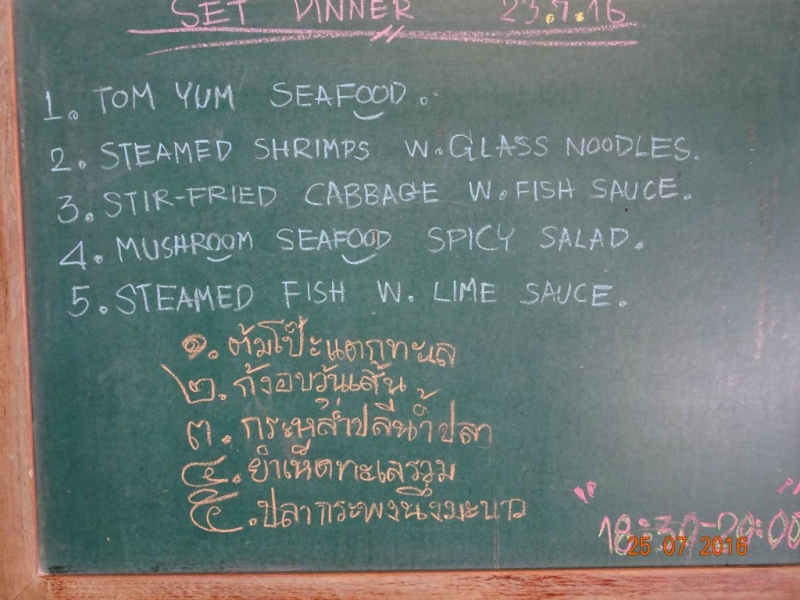 SET DINNER 23.7.16
1. TOM YUM SEAFOOD.
2. STEAMED SHRIMPS W. GLASS NOODLES.
3. STIR-FRIED CABBAGE W. FISH SAUCE.
4. MUSHROOM SEAFOOD SPICY SALAD.
5. STEAMED FISH W. LIME SAUCE.
๑. ต้มโป๊ะแตกทะเล
๒. กุ้งอบวุ้นเส้น
๓. กระหล่ำปลีน้ำปลา
๔. ยำเห็ดทะเลรวม
๕. ปลากระพงนึ่งมะนาว
18:30-20:00
25 07 2016